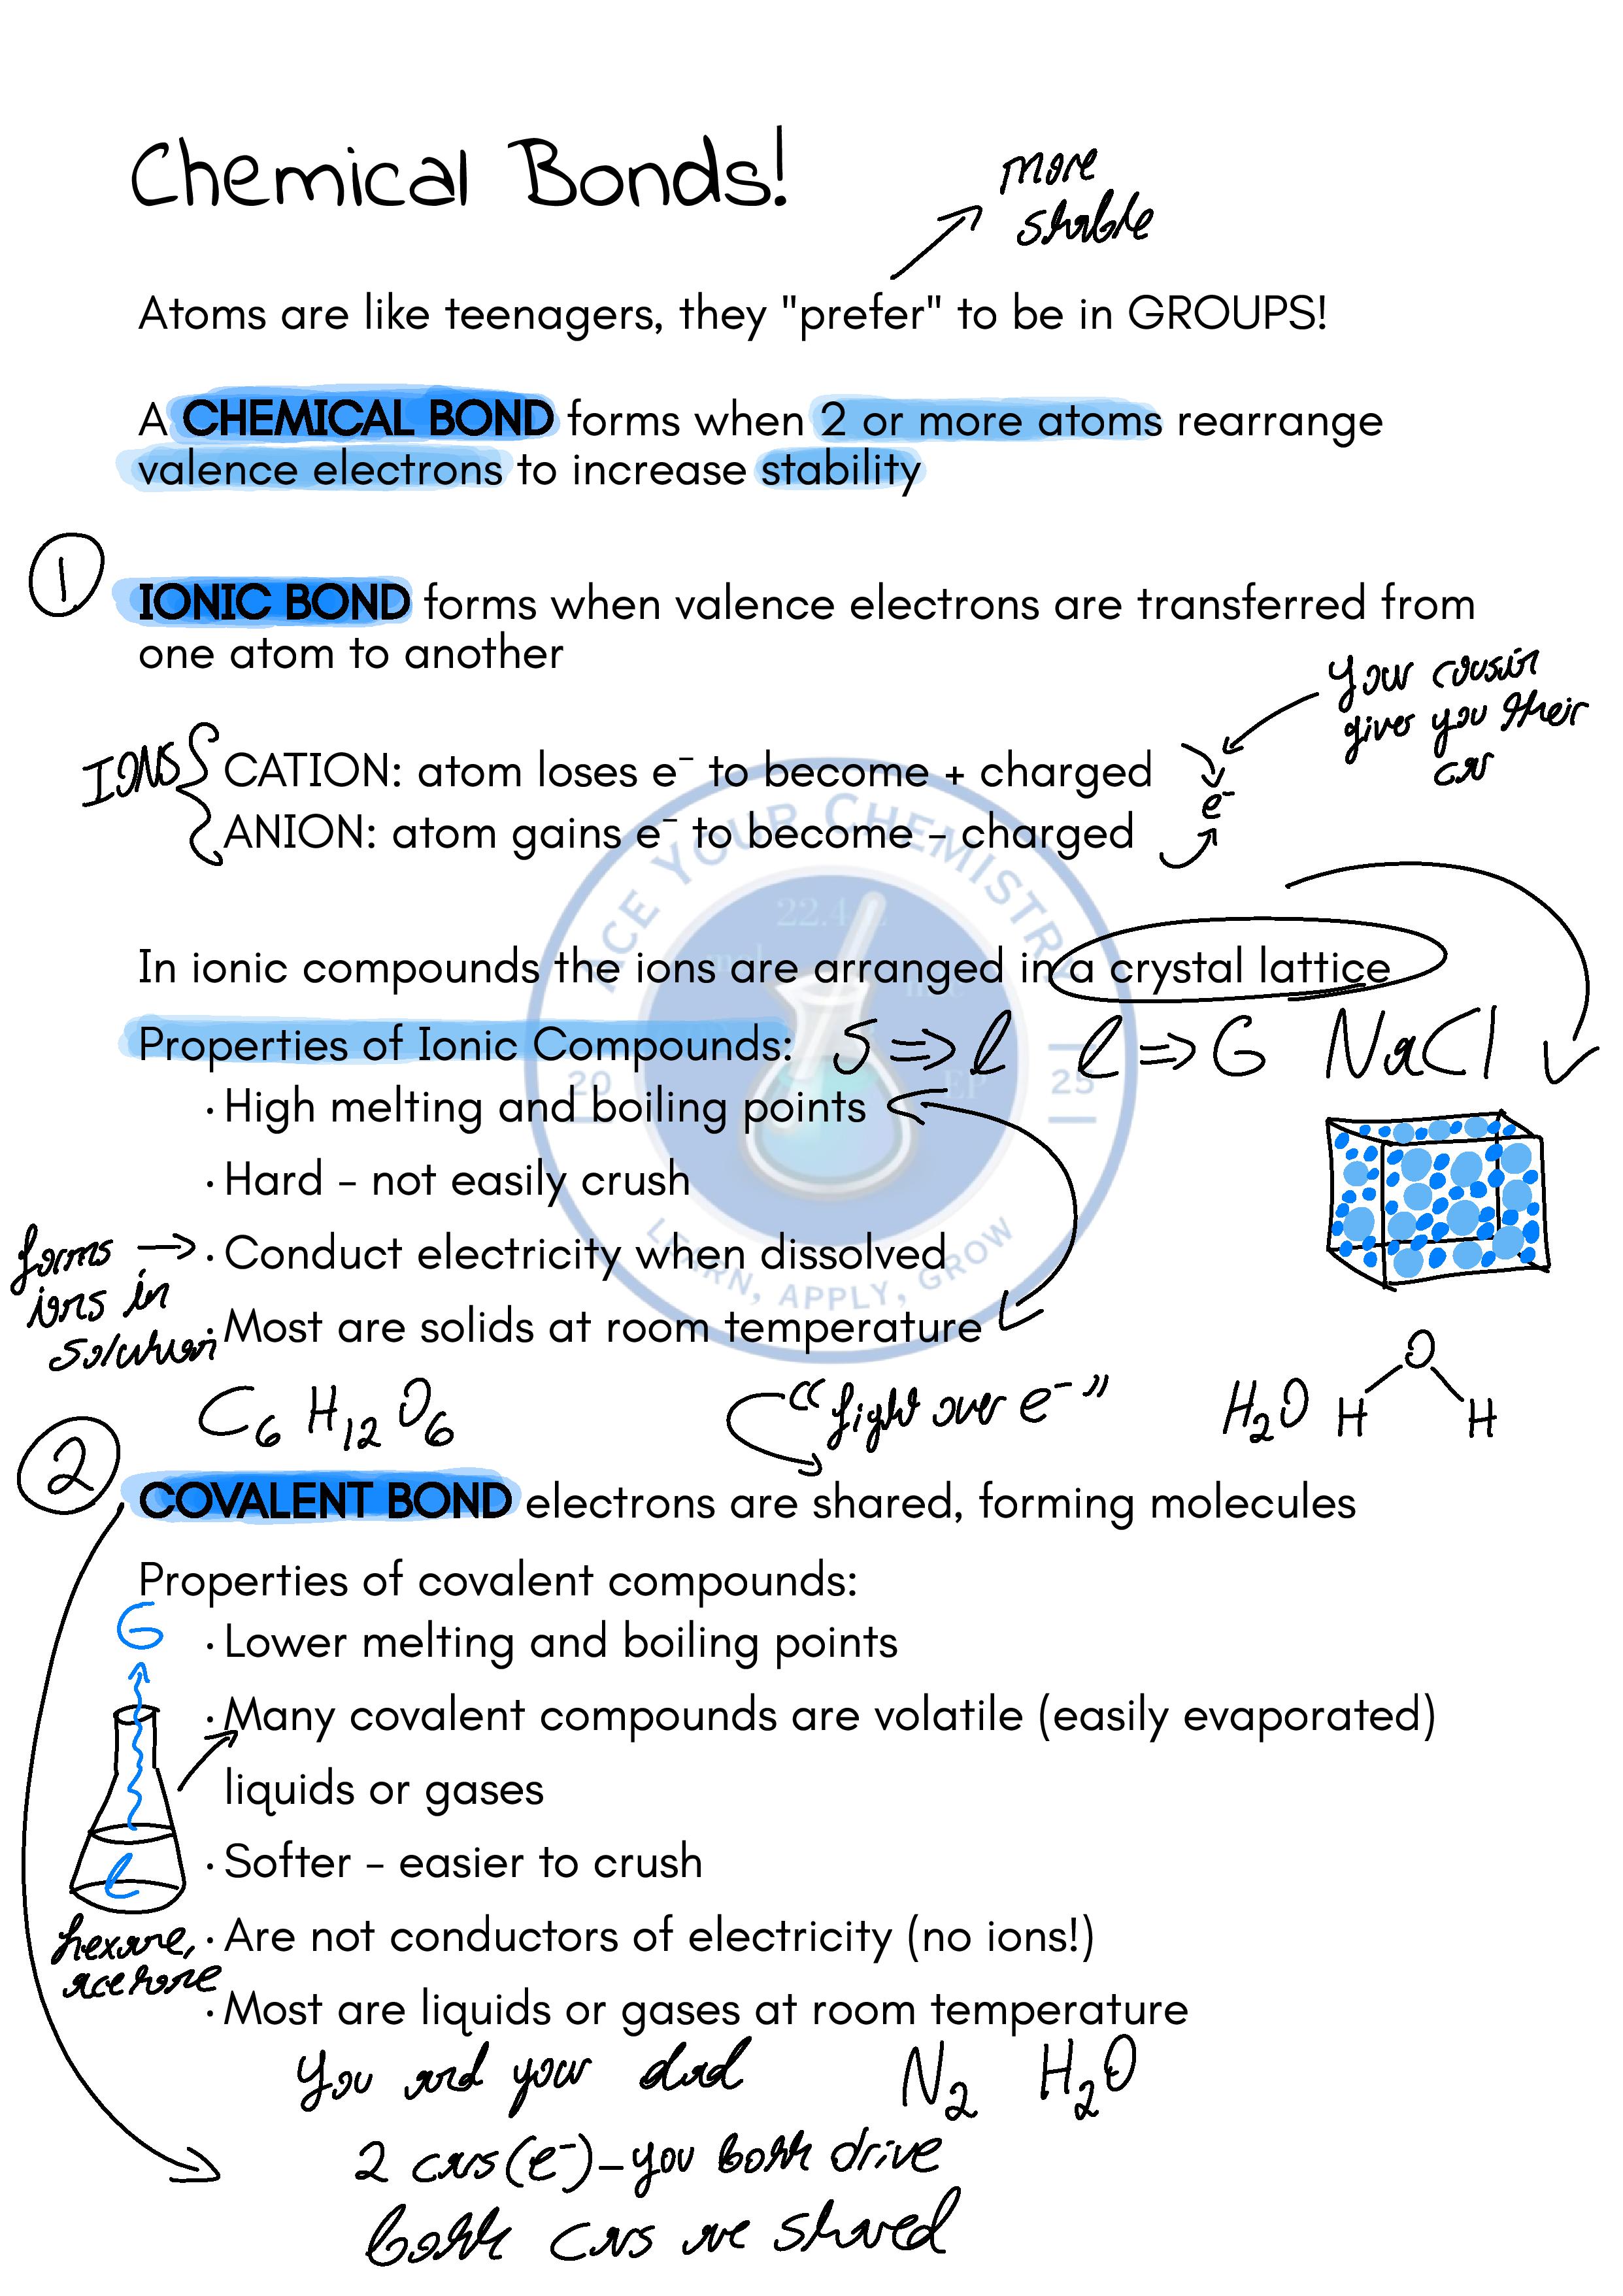 Chemical Bonds!
more
stable
Atoms are like teenagers, they "prefer" to be in GROUPS!
A CHEMICAL BOND forms when 2 or more atoms rearrange
valence electrons to increase stability
1
IONIC BOND forms when valence electrons are transferred from
one atom to another
Your cousin
gives you their
car
IONS
CATION: atom loses e⁻ to become + charged
e⁻
ANION: atom gains e⁻ to become - charged
In ionic compounds the ions are arranged in a crystal lattice
Properties of Ionic Compounds: S => l l => G NaCl
· High melting and boiling points
· Hard - not easily crush
· Conduct electricity when dissolved
forms
ions in
solution
· Most are solids at room temperature
C₆H₁₂O₆
"fight over e⁻"
H₂O
O
H H
2
COVALENT BOND electrons are shared, forming molecules
Properties of covalent compounds:
G
· Lower melting and boiling points
· Many covalent compounds are volatile (easily evaporated)
liquids or gases
l
· Softer - easier to crush
· Are not conductors of electricity (no ions!)
hexane,
acetone
· Most are liquids or gases at room temperature
You and your dad
N₂ H₂O
2 cars (e⁻) - you both drive
both cars are shared
ACE YOUR CHEMISTRY
22.4
20 25
LEARN, APPLY, GROW